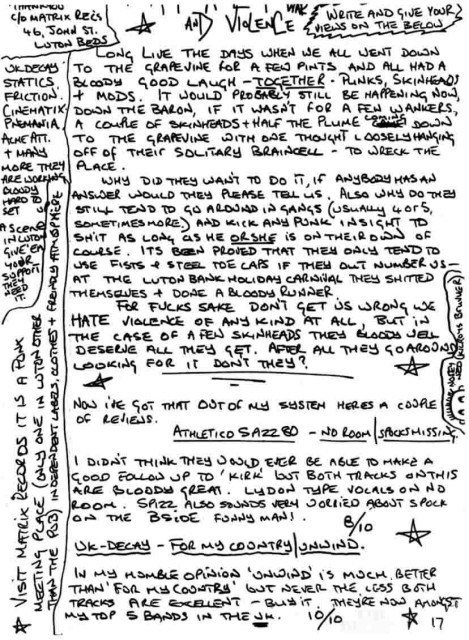 C/O MATRIX REC'S
46, JOHN ST.
LUTON BEDS
AND VIOLENCE
WRITE AND GIVE YOUR
VIEWS ON THE BELOW
UK-DECAY
STATICS
FRICTION.
CINEMATIX
PNEMANIA.
ACHE ATT.
+ MANY
MORE THEY
ARE WORKING
BLOODY
HARD TO
SET
A SCENE
IN LUTON
GIVE 'EM
YOUR
SUPPORT
THEY
NEED
IT.
LONG LIVE THE DAYS WHEN WE ALL WENT DOWN
TO THE GRAPEVINE FOR A FEW PINTS AND ALL HAD A
BLOODY GOOD LAUGH - TOGETHER - PUNKS, SKINHEADS
+ MODS. IT WOULD PROBABLY STILL BE HAPPENING NOW,
DOWN THE BARON, IF IT WASN'T FOR A FEW WANKERS,
A COUPLE OF SKINHEADS + HALF THE PLUME COMING DOWN
TO THE GRAPEVINE WITH ONE THOUGHT LOOSELY HANGING
OFF OF THEIR SOLITARY BRAINCELL - TO WRECK THE
PLACE.
WHY DID THEY WANT TO DO IT, IF ANYBODY HAS AN
ANSWER WOULD THEY PLEASE TELL US. ALSO WHY DO THEY
STILL TEND TO GO AROUND IN GANGS (USUALLY 4 OR 5,
SOMETIMES MORE) AND KICK ANY PUNK IN SIGHT TO
SH*T AS LONG AS HE OR SHE IS ON THEIR OWN OF
COURSE. ITS BEEN PROVED THAT THEY ONLY TEND TO
USE FISTS + STEEL TOE CAPS IF THEY OUT NUMBER US -
AT THE LUTON BANK HOLIDAY CARNIVAL THEY SHITTED
THEMSELVES + DONE A BLOODY RUNNER.
FOR FUCKS SAKE DON'T GET US WRONG WE
HATE VIOLENCE OF ANY KIND AT ALL, BUT IN
THE CASE OF A FEW SKINHEADS THEY BLOODY WELL
DESERVE ALL THEY GET. AFTER ALL THEY GO AROUND
LOOKING FOR IT DON'T THEY?
NOW I'VE GOT THAT OUT OF MY SYSTEM HERES A COUPLE
OF REVIEWS.
ATHLETICO SPIZZ 80 - NO ROOM | SPOCKS MISSING.
I DIDN'T THINK THEY WOULD EVER BE ABLE TO MAKE A
GOOD FOLLOW UP TO 'KIRK' BUT BOTH TRACKS ON THIS
ARE BLOODY GREAT. LYDON TYPE VOCALS ON NO
ROOM. SPIZZ ALSO SOUNDS VERY WORRIED ABOUT SPOCK
ON THE BSIDE FUNNY MAN!
8/10
UK-DECAY - FOR MY COUNTRY | UNWIND.
IN MY HUMBLE OPINION 'UNWIND' IS MUCH BETTER
THAN 'FOR MY COUNTRY' BUT NEVER THE LESS BOTH
TRACKS ARE EXCELLENT - BUY IT. THEY'RE NOW AMONGST
MY TOP 5 BANDS IN THE UK. 10/10
17
VISIT MATRIX RECORDS IT IS A PUNK
MEETING PLACE (ONLY ONE IN LUTON OTHER
THAN THE PSB) INDEPENDENT LABELS, CLOTHES + FRIENDLY ATMOSPHERE